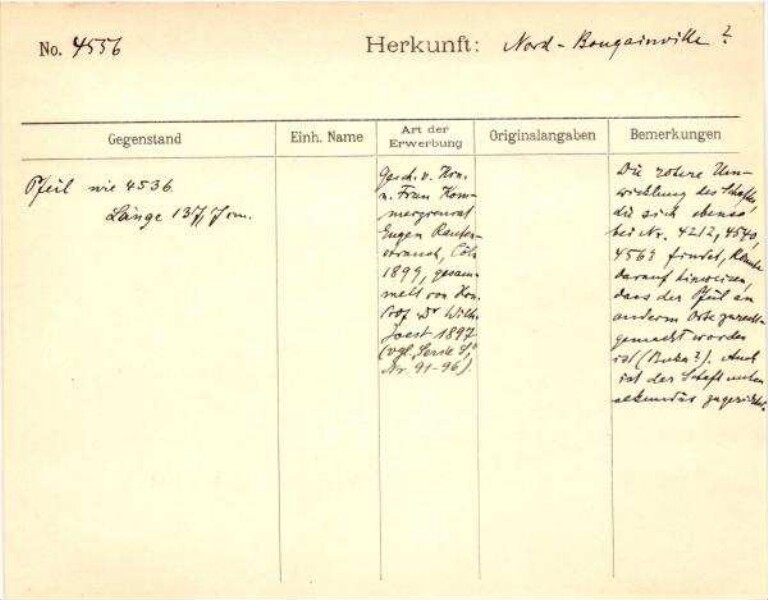 No. 4556 Herkunft: Nord-Bougainville?
Gegenstand Einh. Name Art der Erwerbung Originalangaben Bemerkungen
Pfeil wie 4536.
Länge 137,7 cm.
Gesch. v. Hrn.
u. Frau Kom-
merzienrat
Eugen Rauten-
strauch, Cöln
1899, gesam-
melt von Hrn.
Prof. Dr. Wilh.
Joest 1897
(vgl. Serie S,
Nr. 91-96).
Die rotere Um-
wicklung des Schaftes,
die sich ebenso
bei Nr. 4212, 4540,
4563 findet, könnte
darauf hinweisen,
dass der Pfeil an
anderm Orte zurecht-
gemacht worden
ist (Buka?). Auch
ist der Schaft unten
sekundär zugerichtet.